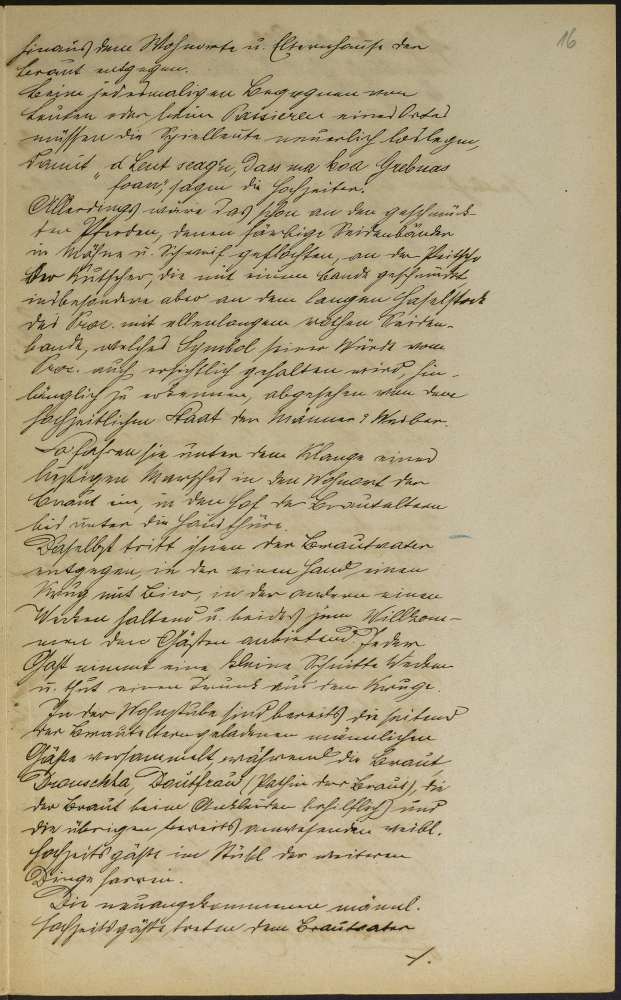 16
hinaus dem Wohnorte u. Elternhause der
Braut entgegen.
Beim jedesmaligen Begegnen von
Leuten oder beim Passieren eines Ortes
müssen die Spielleute neuerlich loslegen,
damit „d Leut seag'n, dass ma koa Grebnus
foan", sagen die Hochzeiter.
Allerdings wäre das schon an den geschmück-
ten Pferden, denen färbige Seidenbänder
in Mähne u. Schweif geflochten, an der Peitsche
der Kutscher, die mit einem Bande geschmückt
insbesondere aber an dem langen Haselstock
des Proc. mit ellenlangem rothen Seiden-
bande, welches Symbol seiner Würde vom
Proc. auch ersichtlich gehalten wird, hin-
länglich zu erkennen, abgesehen von dem
hochzeitlichen Staat der Männer & Weiber.
So fahren sie unter dem Klange eines
lustigen Marsches in den Wohnort der
Braut ein, in den Hof der Brauteltern
bis unter die Hausthüre.
Daselbst tritt ihnen der Brautvater
entgegen, in der einen Hand einen
Krug mit Bier, in der anderen einen
Wecken haltend u. beides zum Willkom-
men den Gästen anbietend. Jeder
Gast nimmt eine kleine Schnitte Wecken
u. thut einen Trunk aus dem Kruge.
In der Wohnstube sind bereits die seitens
der Brauteltern geladenen männlichen
Gäste versammelt, während die Braut,
Druschkla, Bautfrau (Pathin der Braut), die
der Braut beim Ankleiden behilflich und
die übrigen bereits anwesenden weibl.
Hochzeitsgäste im Stübl der weiteren
Dinge harren.
Die neuangekommenen männl.
Hochzeitsgäste treten dem Brautvater